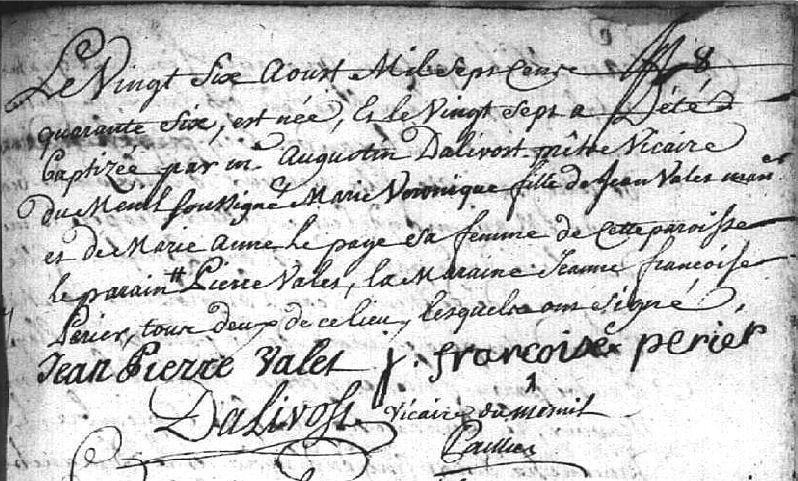 Le Vingt Six Aoust Mil Sept Cens
quarante Six, est née, Et le Vingt Sept a Eté
baptizée par m.e Augustin Dalivost prêtre Vicaire
du Menil soussigné Marie Veronique fille de Jean Vales
et de Marie Anne le page sa femme de Cette paroisse
le parain Pierre Vales, la Maraine Jeanne françoise
Perier, tous deux de ce lieu, lesquels ont signé,
Jean Pierre Valet J. francoise perier
Dalivost Vicaire du mesnil